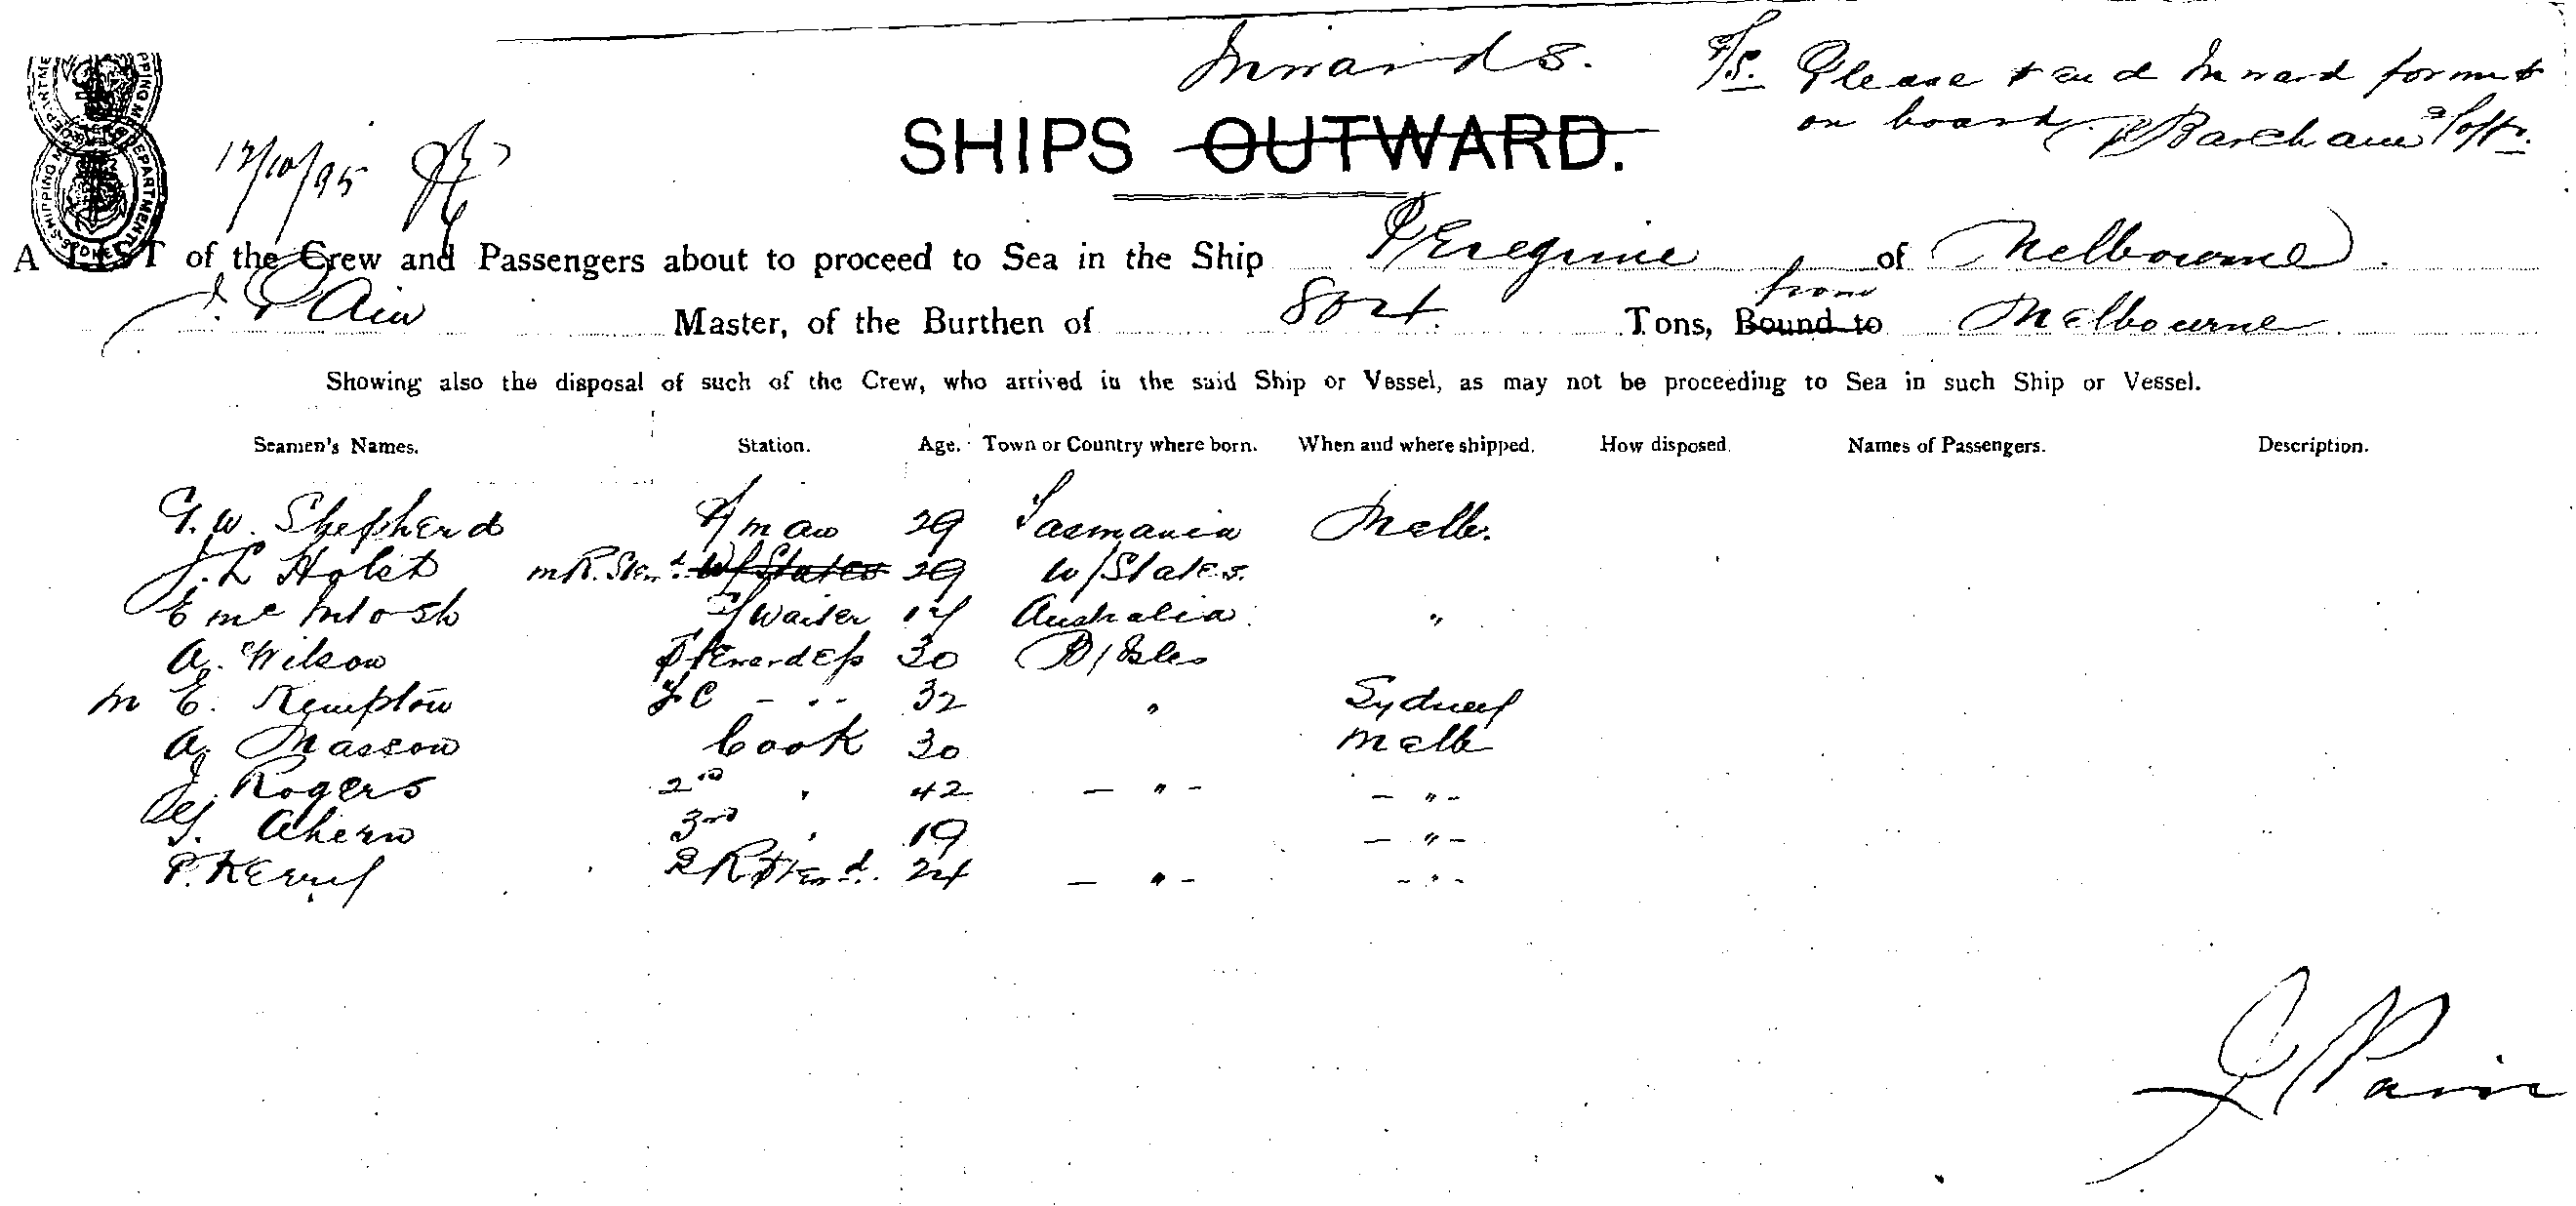 Inwards.
P/S. Please send Inward forms
on board
SHIPS OUTWARD.
12/10/95
A LIST of the Crew and Passengers about to proceed to Sea in the Ship Peregrine of Melbourne
J. Pain Master, of the Burthen of 804 Tons, Bound to from Melbourne
Showing also the disposal of such of the Crew, who arrived in the said Ship or Vessel, as may not be proceeding to Sea in such Ship or Vessel.
Seamen's Names. Station. Age. Town or Country where born. When and where shipped. How disposed. Names of Passengers. Description.
G. W. Shepherd 29 Tasmania Melb.
J. L Holst W/States 29 W/States.
E Mc Intosh Waiter Australia "
A. Wilson Stewardess 30 B/Isles
M E. Kempton 32 " Sydney
A. Masson Cook 30 Melb
J. Rogers 2nd " 42 — " - — " -
G. Ahern 3rd " 19 — " -
P. Kerry 24 — " - - " -
J Pain